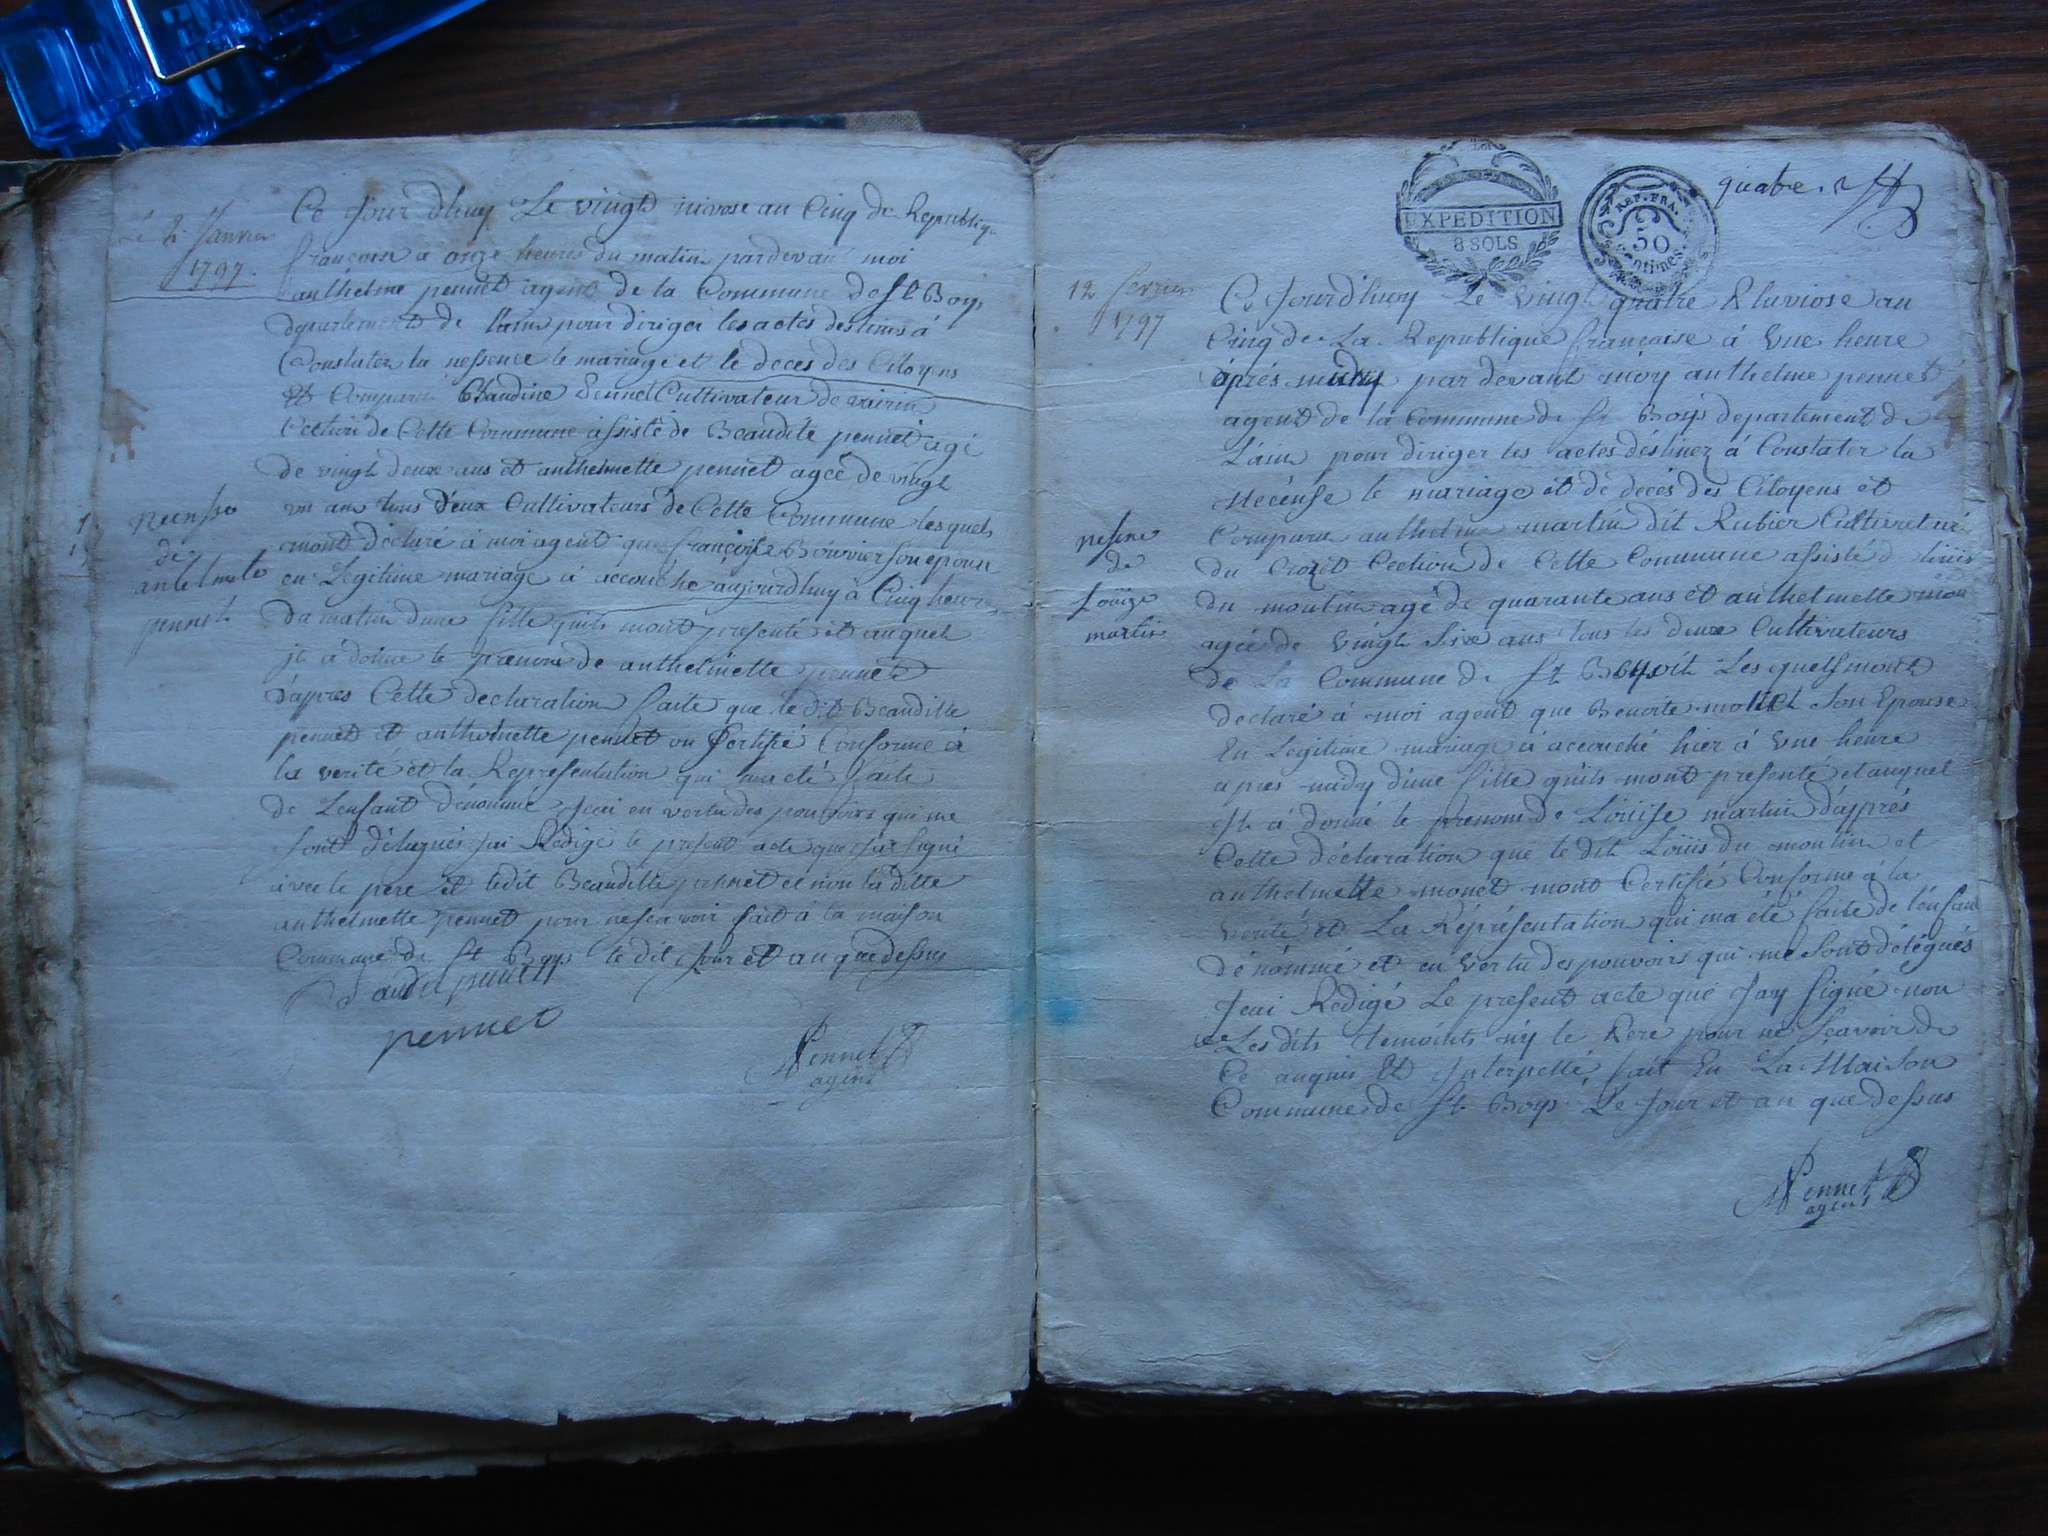 Janvier
1797.
Ce Jour dhuy Le vingt nivose an Cinq de Republique
francoise a onze heures du matin pardevant moi
anthelme pennet agent de la Commune de St Boys
departement de lain pour diriger les actes destinés à
Constater la nessence le mariage et le deces des Citoyens
Et Comparu Claudine pennet Cultivateur de
Cection de Cette Commune assisté de Beaudite pennet agé
de vingt deux ans et anthelmette pennet agée de vingt
un ans tous deux Cultivateurs de Cette Commune lesquels
mont déclaré à moi agent que françoise Bouvier son epouse
en Legitime mariage à accouché aujourdhuy à Cinq heures
Du matin dune fille quils mont presenté et auquel
il a donné le prenom de anthelmette pennet
daprès Cette declaration faite que le dit Beauditte
pennet et anthelmette pennet on Certifié Conforme à
la verité et la Representation qui ma eté faite
de Lenfant dénommé Jeai en vertu des pouvoirs qui me
sont délegués jai Rédigé le present acte que jai signé
avec le pere et ledit Beauditte pennet et non la ditte
anthelmette pennet pour ne scavoir fait à la maison
Commune de St Boys le dit jour et an que dessus
de
antelmete
pennet
pennet
pennet
Pennet
agent
LOI
EXPEDITION
8 SOLS
REP. FRA.
50
Centimes
quatre
12 fevrier
1797
Ce Jourd'huy Le Vingt quatre Pluviose an
Cinq de La Republique francaise à Vne heure
après midy par devant moy anthelme pennet
agent de la Commune de St Boys departement de
L'ain pour diriger les actes destinez à Constater la
Nécense le mariage et de decès des Citoyens et
Comparu anthelme martin dit Rubier
du Crozet Cection de Cette Commune assisté d Loüis
du moulin agé de quarante ans et anthelmette
agée de Vingt Sixe ans tous les deux Cultivateurs
de La Commune de St Boys Les quels mont
declaré à moi agent que Benoite mollet Son Epouse
En Legitime mariage à accouché hier à Vne heure
apres midy dune fille quils mont presenté et auquel
Jl à donné le prenom de Loüise martin d'apprés
Cette déclaration que le dit Loüis du moulin et
anthelmette monet mont Certifié Conforme à la
verité et La Réprésentation qui ma été faite de l'enfant
dénommé et en vertu des pouvoirs qui me sont délégués
Jeai Redigé Le present acte que Jay Signé non
Les dits temoints ny le Pere pour ne Scavoir de
Ce anquis Et Jnterpellé fait En La Maison
Commune de St Boys Le Jour et an que dessus
de
Loüize
martin
Pennet
agent